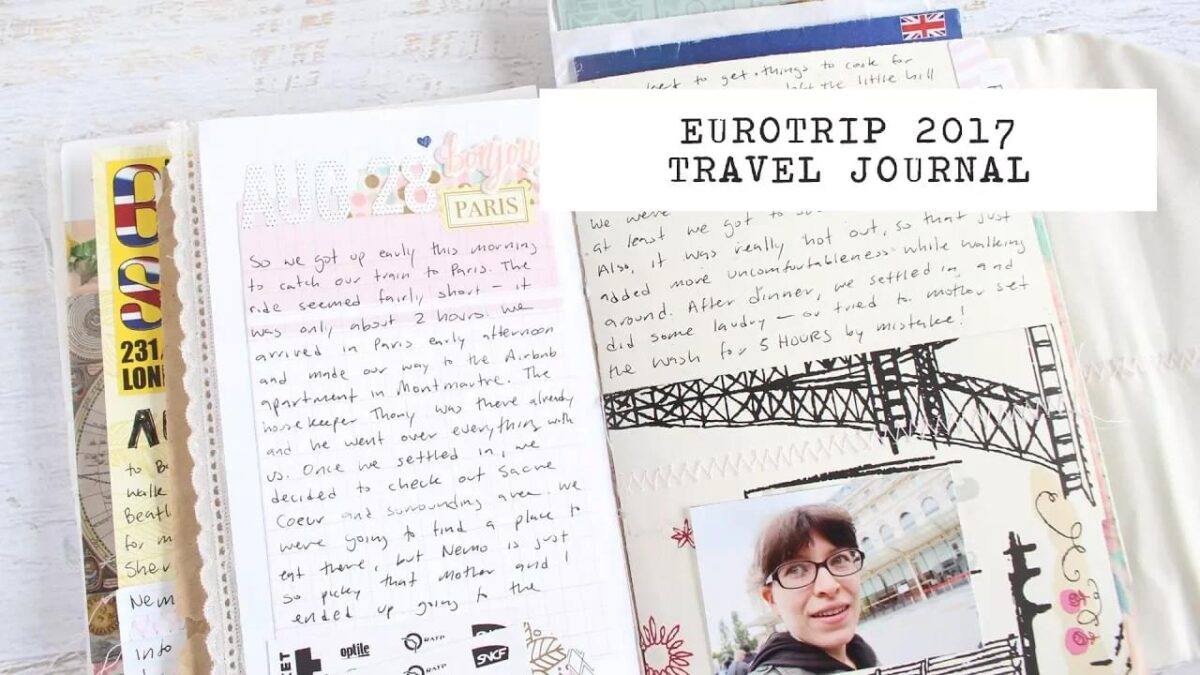 EUROTRIP 2017
TRAVEL JOURNAL
BUS
231,
LON
to B
walk
Beatl
for m
Sher
Nem
into
AUG 28
Bonjour
PARIS
So we got up early this morning
to catch our train to Paris. The
ride seemed fairly short — it
was only about 2 hours. We
arrived in Paris early afternoon
and made our way to the Airbnb
apartment in Montmautre. The
housekeeper Thony was there already
and he went over everything with
us. Once we settled in, we
decided to check out Sacre
Coeur and surrounding area. We
were going to find a place to
eat there, but Nemo is just
so picky that Mother and I
ended up going to the
KET
optile
RATP
RATP
SNCF
to get things to cook for
the little hill
we were
at least we got to
Also, it was really hot out, so that just
added more uncomfortableness while walking
around. After dinner, we settled in, and
did some laudry — or tried to. Mother set
the wash for 5 HOURS by mistake!